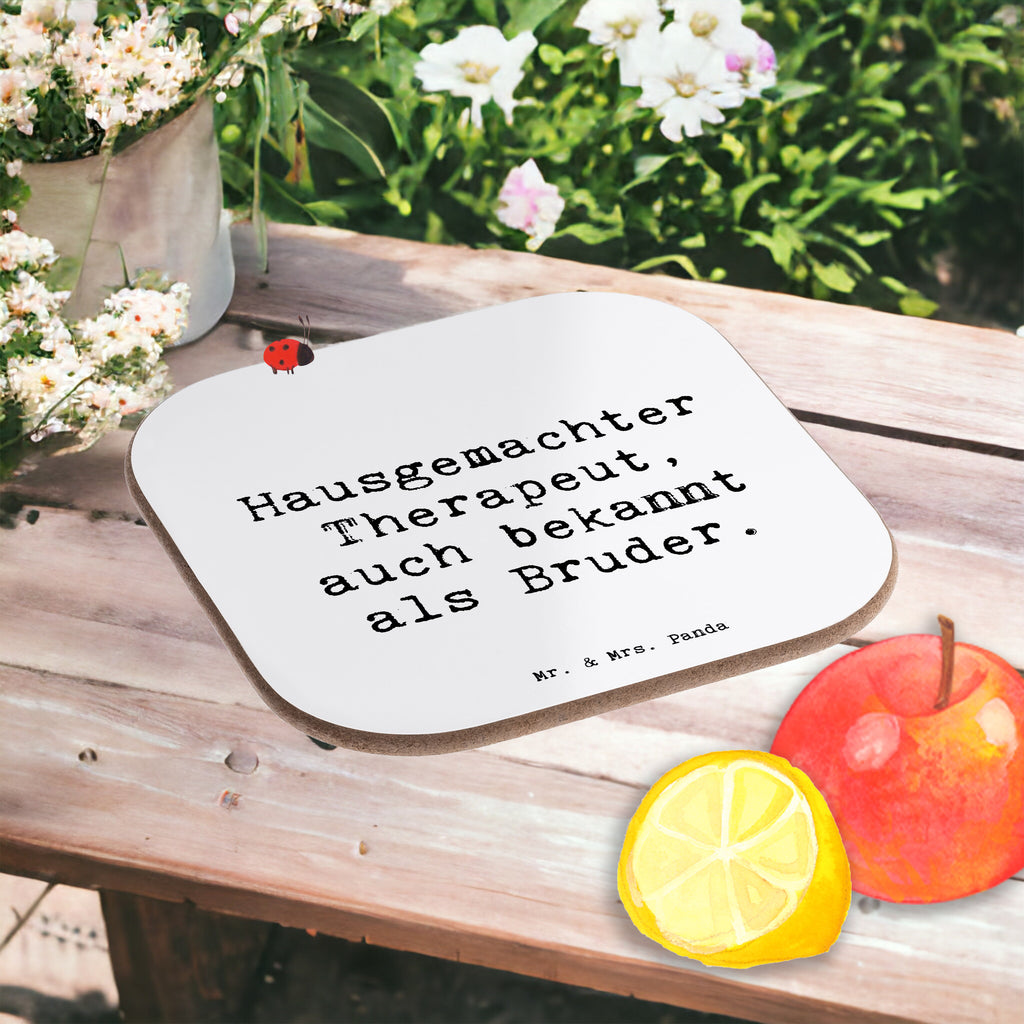 Hausgemachter
Therapeut,
auch bekannt
als Bruder.
Mr. & Mrs. Panda